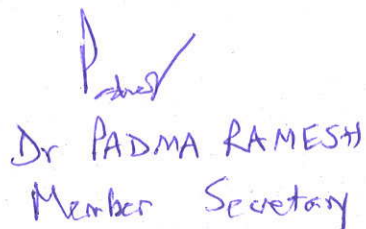 Dr PADMA RAMESH
Member Secretary